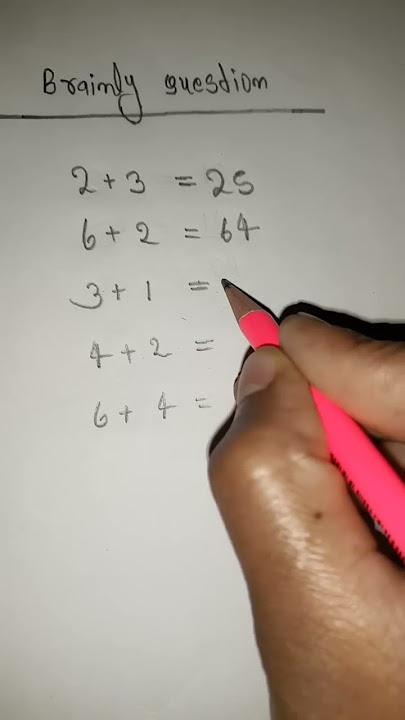 Brainly question
2 + 3 = 25
6 + 2 = 64
3 + 1 =
4 + 2 =
6 + 4 =